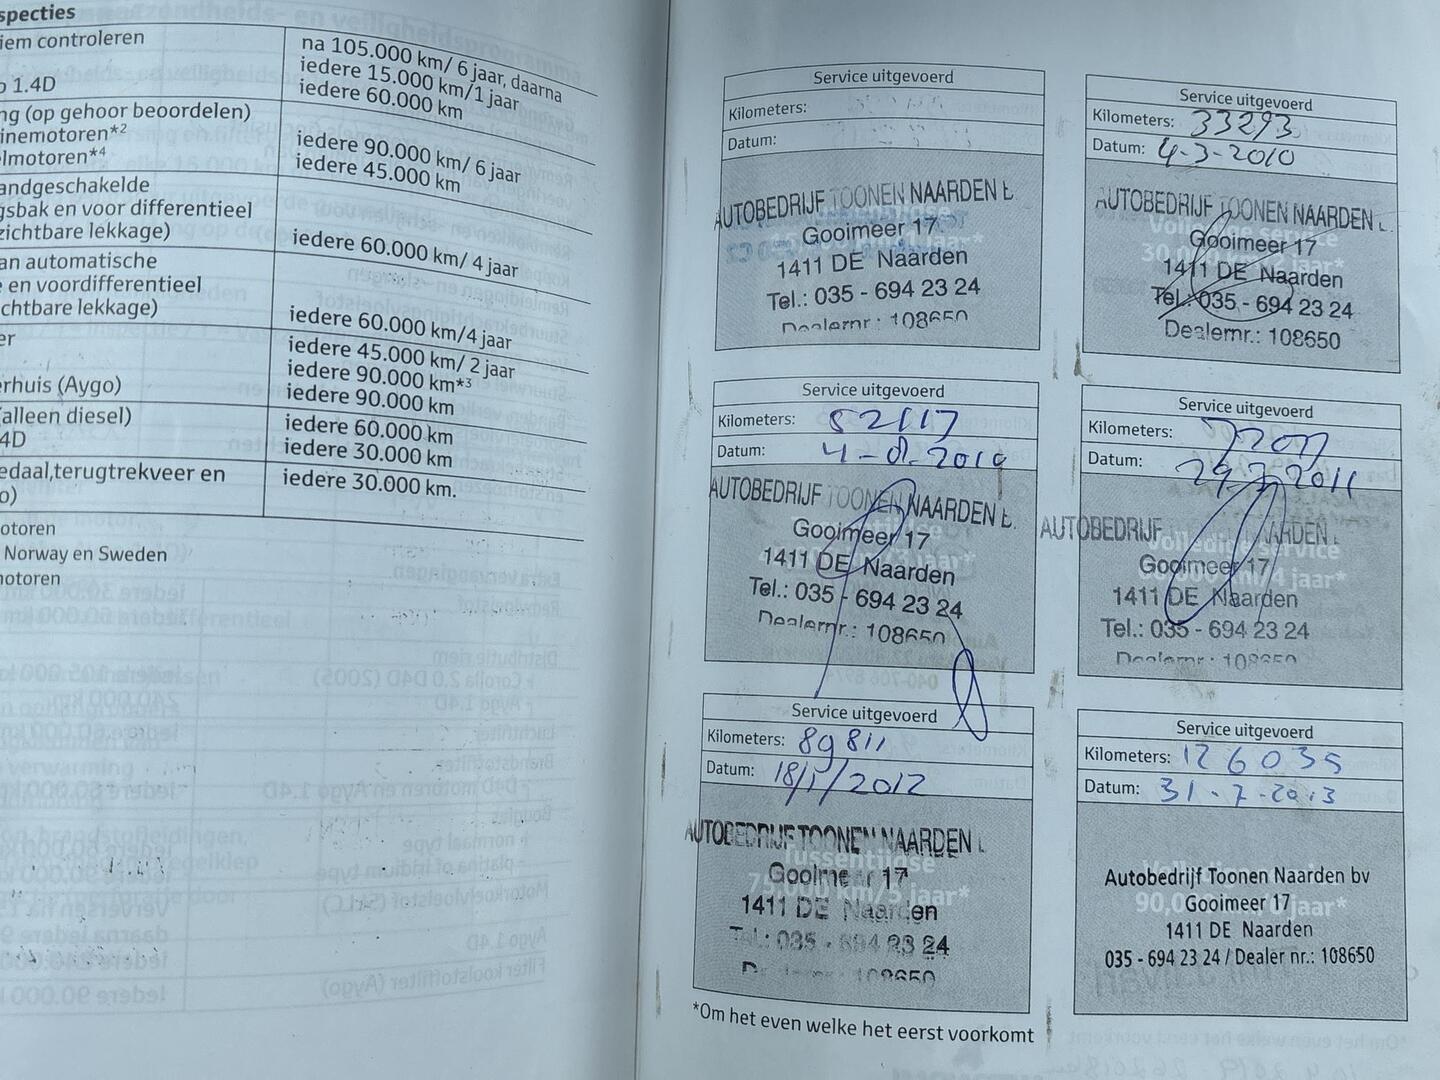 specties
iem controleren
na 105.000 km/ 6 jaar, daarna
iedere 15.000 km/1 jaar
o 1.4D
iedere 60.000 km
ng (op gehoor beoordelen)
inemotoren*2
iedere 90.000 km/ 6 jaar
elmotoren*4
iedere 45.000 km
andgeschakelde
gsbak en voor differentieel
zichtbare lekkage)
iedere 60.000 km/ 4 jaar
an automatische
e en voordifferentieel
ichtbare lekkage)
iedere 60.000 km/4 jaar
er
iedere 45.000 km/ 2 jaar
iedere 90.000 km*3
erhuis (Aygo)
iedere 90.000 km
(alleen diesel)
iedere 60.000 km
4D
iedere 30.000 km
edaal,terugtrekveer en
iedere 30.000 km.
o)
otoren
Norway en Sweden
motoren
Service uitgevoerd
Kilometers:
Datum:
AUTOBEDRIJF TOONEN NAARDEN
Gooimeer 17
1411 DE Naarden
Tel.: 035 - 694 23 24
Dealernr.: 108650
Service uitgevoerd
Kilometers: 33293
Datum: 4-3-2010
AUTOBEDRIJF TOONEN NAARDEN
Volledige service
Gooimeer 17
30.000 km/2 jaar*
1411 DE Naarden
Tel.: 035 - 694 23 24
Dealernr.: 108650
Service uitgevoerd
Kilometers: 52117
Datum: 4-8-2010
AUTOBEDRIJF TOONEN NAARDEN
Gooimeer 17
1411 DE Naarden
Tel.: 035 - 694 23 24
Dealernr.: 108650
Service uitgevoerd
Kilometers:
Datum: 2011
AUTOBEDRIJF NAARDEN
Volledige service
Gooimeer 17
km/4 jaar*
1411 DE Naarden
Tel.: 035 - 694 23 24
Dealernr.: 108650
Service uitgevoerd
Kilometers: 89811
Datum: 18/1/2012
AUTOBEDRIJF TOONEN NAARDEN
Tussentijdse
Gooimeer 17
75.000 km/5 jaar*
1411 DE Naarden
Tel.: 035 - 694 23 24
108650
Service uitgevoerd
Kilometers: 126035
Datum: 31-7-2013
Autobedrijf Toonen Naarden bv
Gooimeer 17
90.000 km/6 jaar*
1411 DE Naarden
035 - 694 23 24 / Dealer nr.: 108650
*Om het even welke het eerst voorkomt